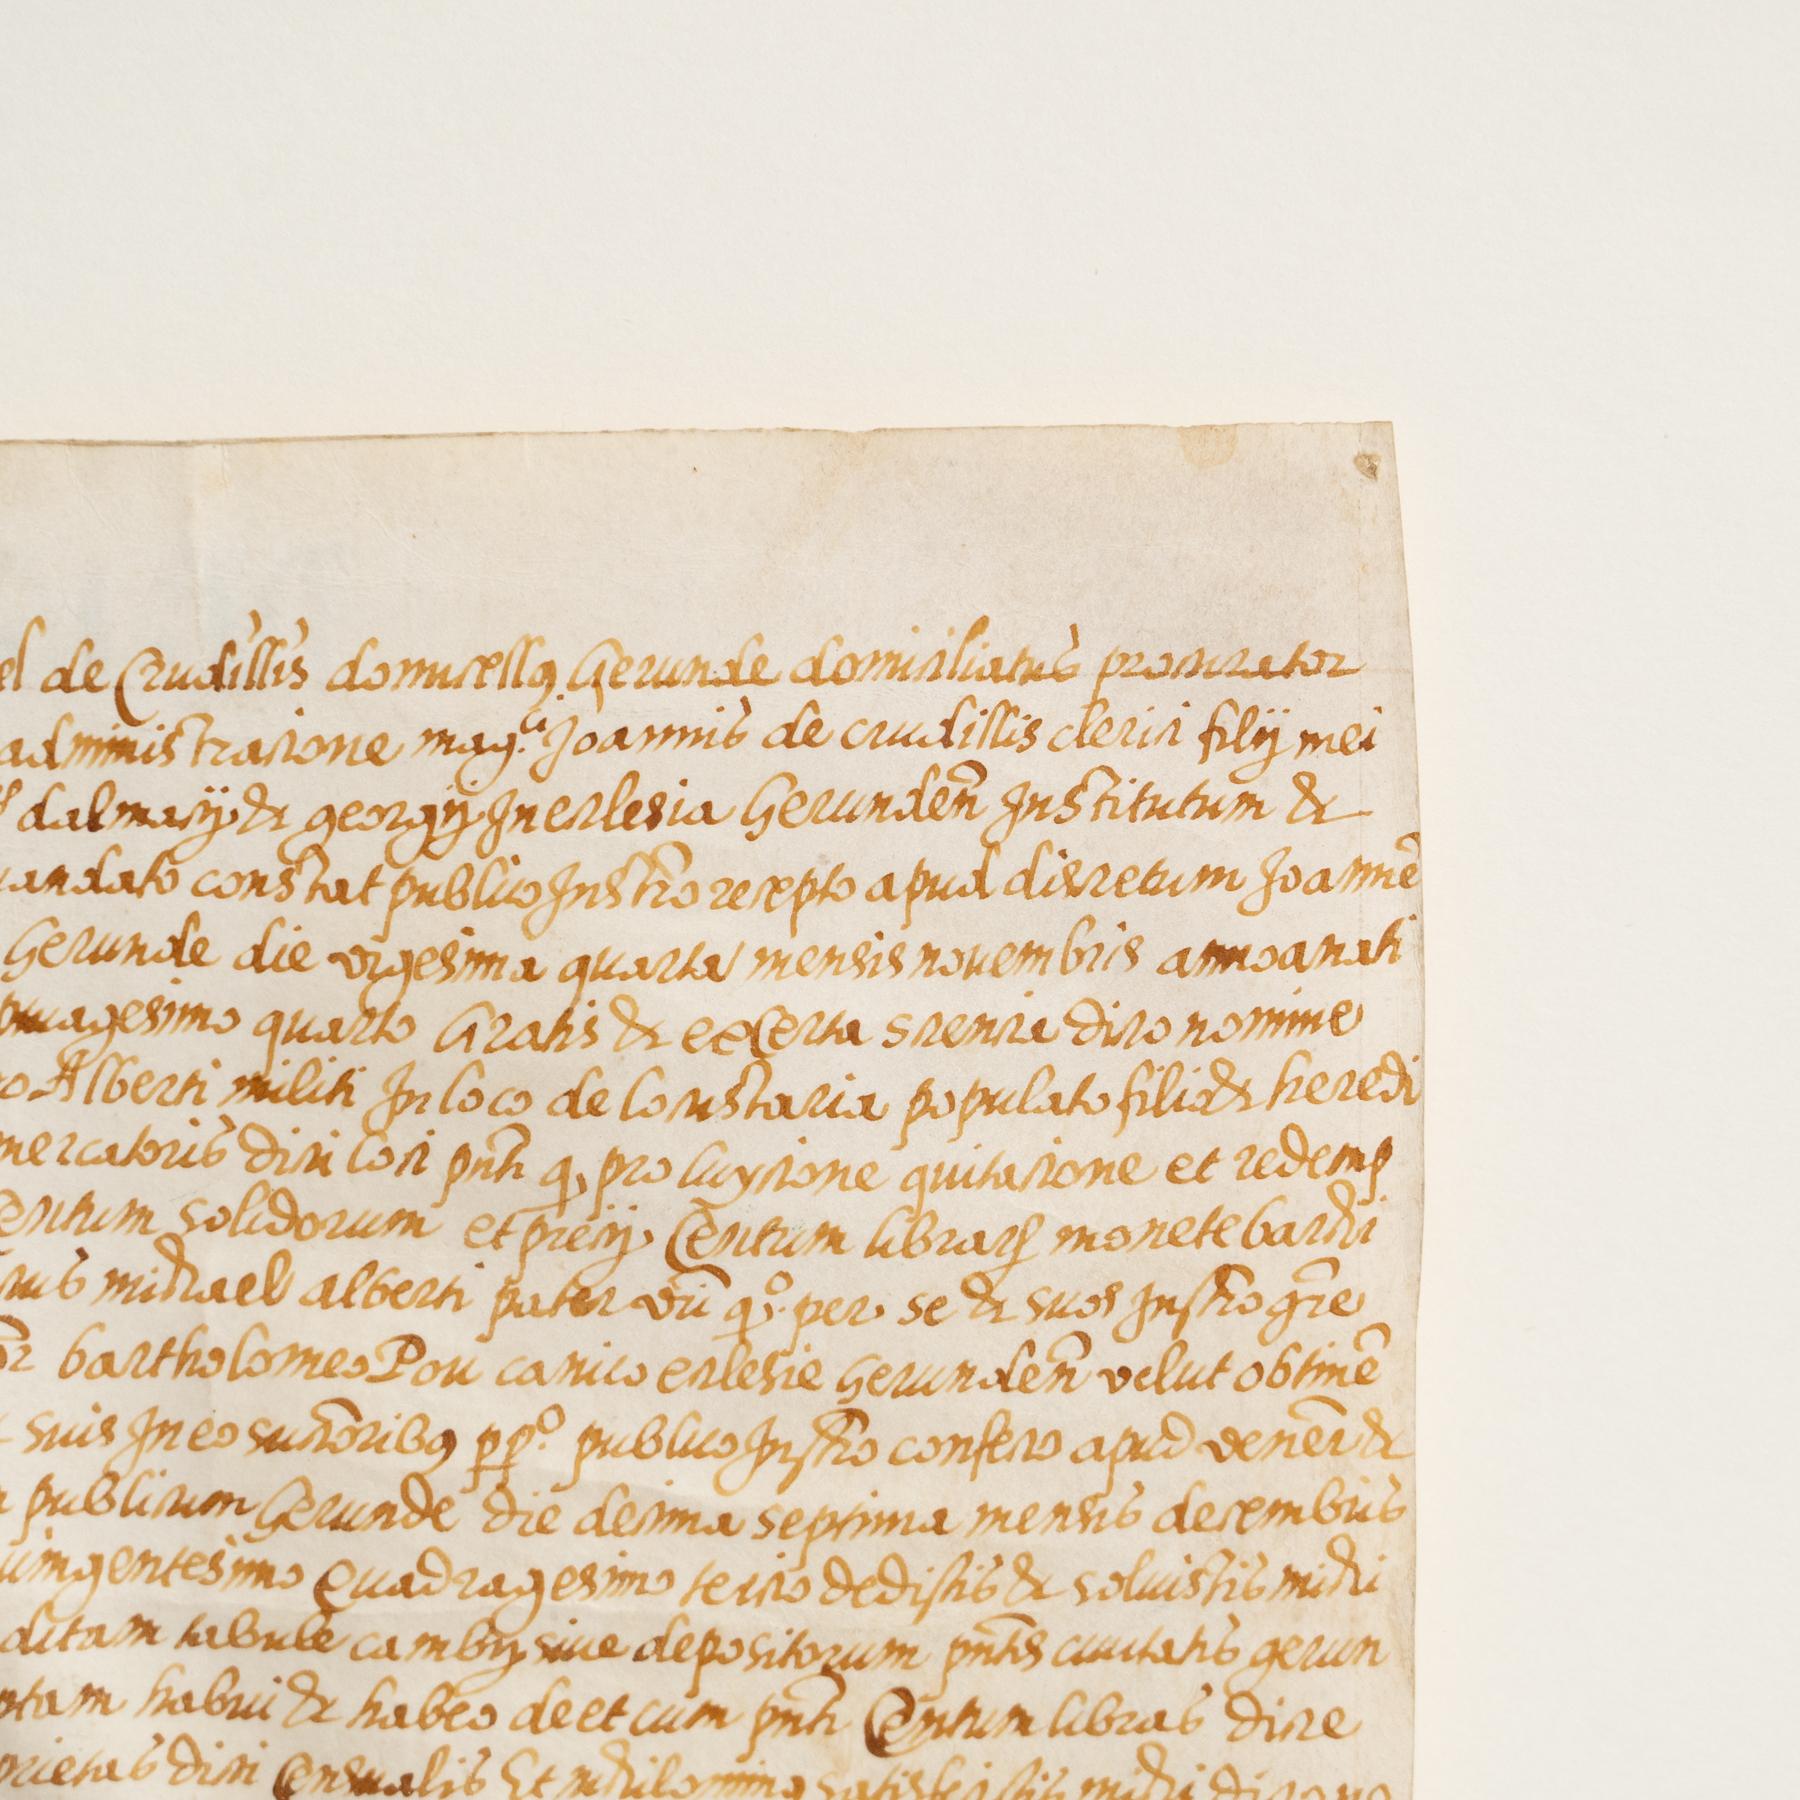 el de Crudillis domicellꝰ Gerunde domiciliatus procurator
administracione mag.ci Joannis de crudillis clerici filij mei
dalmacij & georgij In ecclesia Gerundeñ Institutum &
mandato constat publico Instr̃o recepto apud discretum Joannẽ
Gerunde die vigesima quarta mensis novembris anno a nati
quagesimo quarto Gratis & ex Certa scientia dicto nomine
Alberti militi In loco de Constaria populato filio & heredi
mercatoris dicti loci pñti q, pro luycione quitacione et redemp
centum solidorum et precij Centum librarꝝ monete barchi
michael alberti pater vr̃i q.º per se & suos Instr̃o gr̃e
bartholomeo Pou canico ecclesie Gerundeñ velut obtinẽ
suis In eo succ̃oribꝰ pp.º publico Instr̃o confecto apud veneñ &
publicum Gerunde die decima septima mensis decembris
quingentesimo Quadragesimo tercio dedistis & solvistis michi
ditam tabule cambij sive depositorum pñtis civitatis gerun
habui & habeo de et cum pñti Centum libras dicte
prietas dicti Censualis Et nichilominꝰ satisfecistis michi dicto no